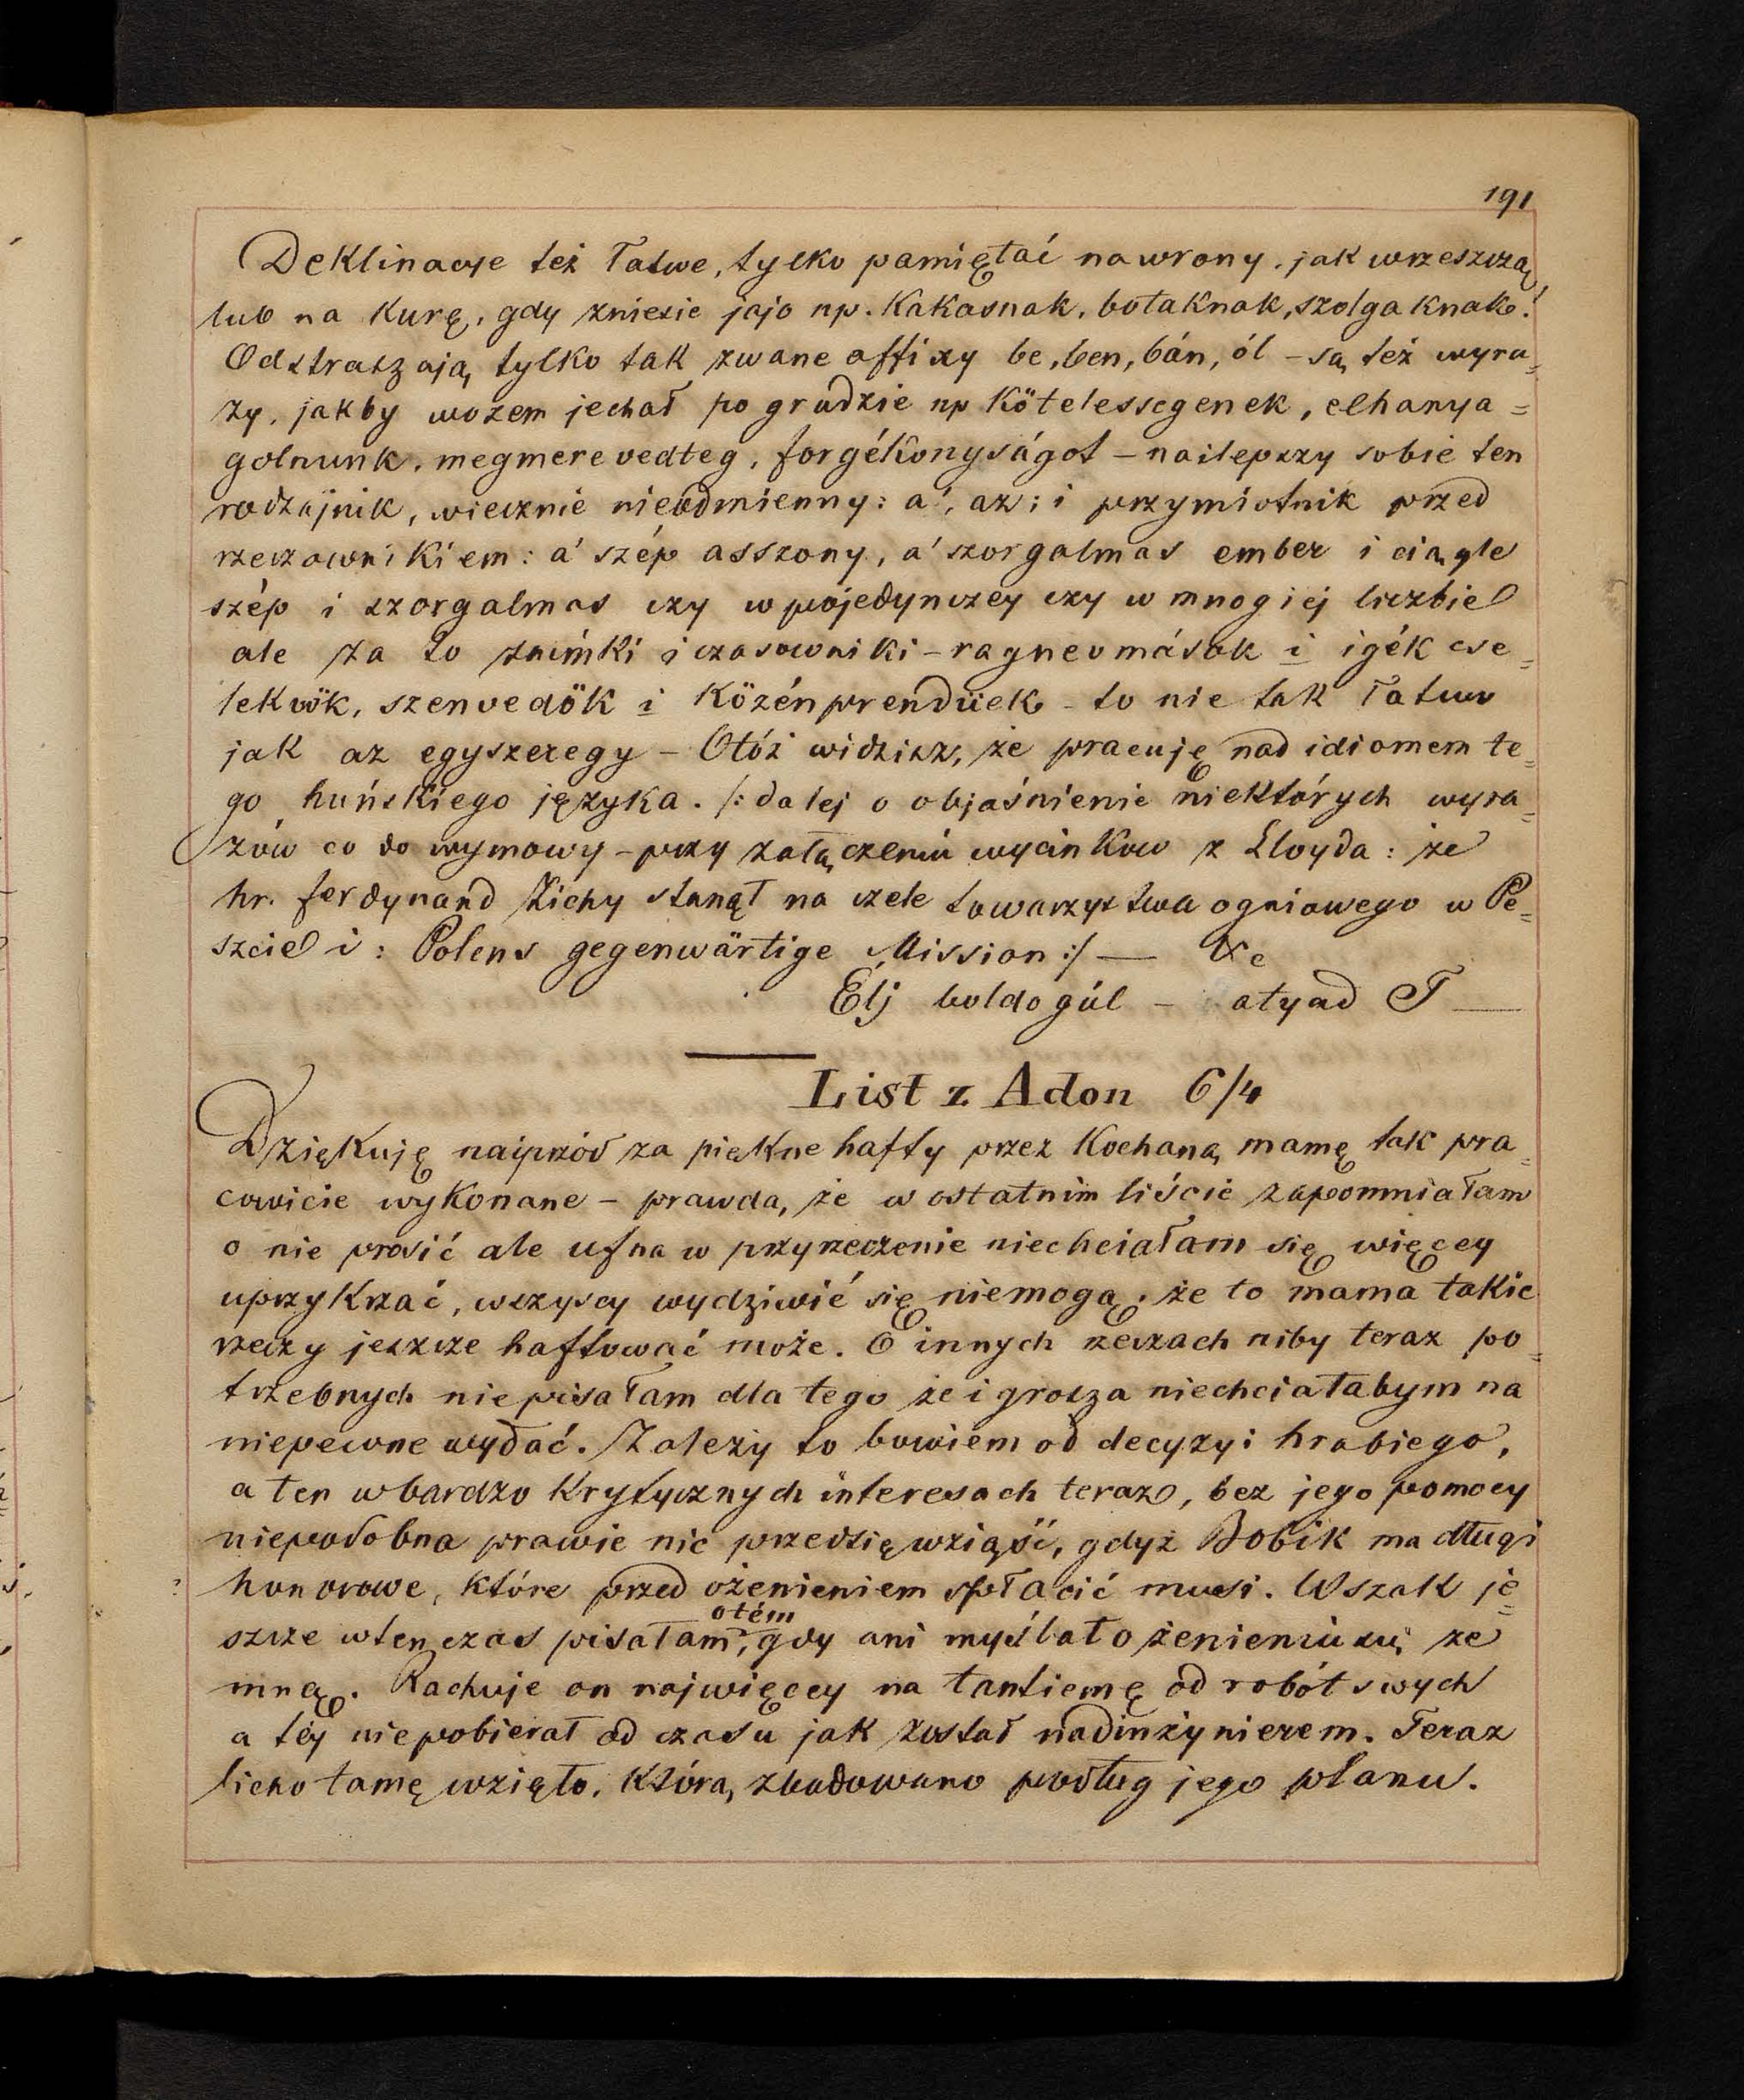 191
Deklinacye też łatwe, tylko pamiętać na wrony, jak wrzeszczą,
lub na kurę, gdy zniesie jajo np. Kakasnak, botaknak, szolgaknak!
Odstraszają tylko tak zwane affixy be, ben, bán, ól – są też wyra=
zy, jakby wozem jechał po grudzie np Kötelessegenek, elhanya=
golnunk, megmerevedteg, forgékonyságot – nailepszy sobie ten
rodzajnik, wiecznie nieodmienny: a', az; i przymiotnik przed
rzeczownikiem: a' szép asszony, a' szorgalmas ember i ciągle
szép i szorgalmas czy w pojedynczey czy w mnogiej liczbie
ale za to zaimki i czasowniki – ragnevmások i igék cse=
lekvök, szenvedök i Közénprendüek – to nie tak łatwo
jak az egyszeregy – Otóż widzisz, że pracuję nad idiomem te=
go huńskiego języka. /: dalej o objaśnienie niektórych wyra=
zów co do wymowy – przy załączeniu wycinkow z Lloyda: że
hr. ferdynand Zichy stanął na czele towarzystwa ogniowego w Pe=
szcie i: Polens gegenwärtige Mission :/ —
Élj boldogúl – atyad T—
List z Adon 6/4
Dziękuję naiprzód za piękne hafty przez Kochaną mamę tak pra=
cowicie wykonane – prawda, że w ostatnim liście zapomniałam
o nie prosić ale ufna w przyrzeczenie niechciałam się więcey
uprzykrzać, wszyscy wydziwić się niemogą, że to mama takie
rzeczy jeszcze haftować może. O innych rzeczach niby teraz po=
trzebnych niepisałam dla tego że i grosza niechciałabym na
niepewne wydać. Zależy to bowiem od decyzyi hrabiego,
a ten w bardzo krytycznych interesach teraz, bez jego pomocy
niepodobna prawie nic przedsięwziąść, gdyż Bobik ma długi
honorowe, które przed ożenieniem spłacić musi. Wszak je=
szcze wtenczas pisałam otém, gdy ani myślał o żenieniu się ze
mną. Rachuje on najwięcey na tantiemę od robót swych
a téy niepobierał od czasu jak został nadinżynierem. Teraz
licho tamę wzięło, którą zbudowano podług jego planu.